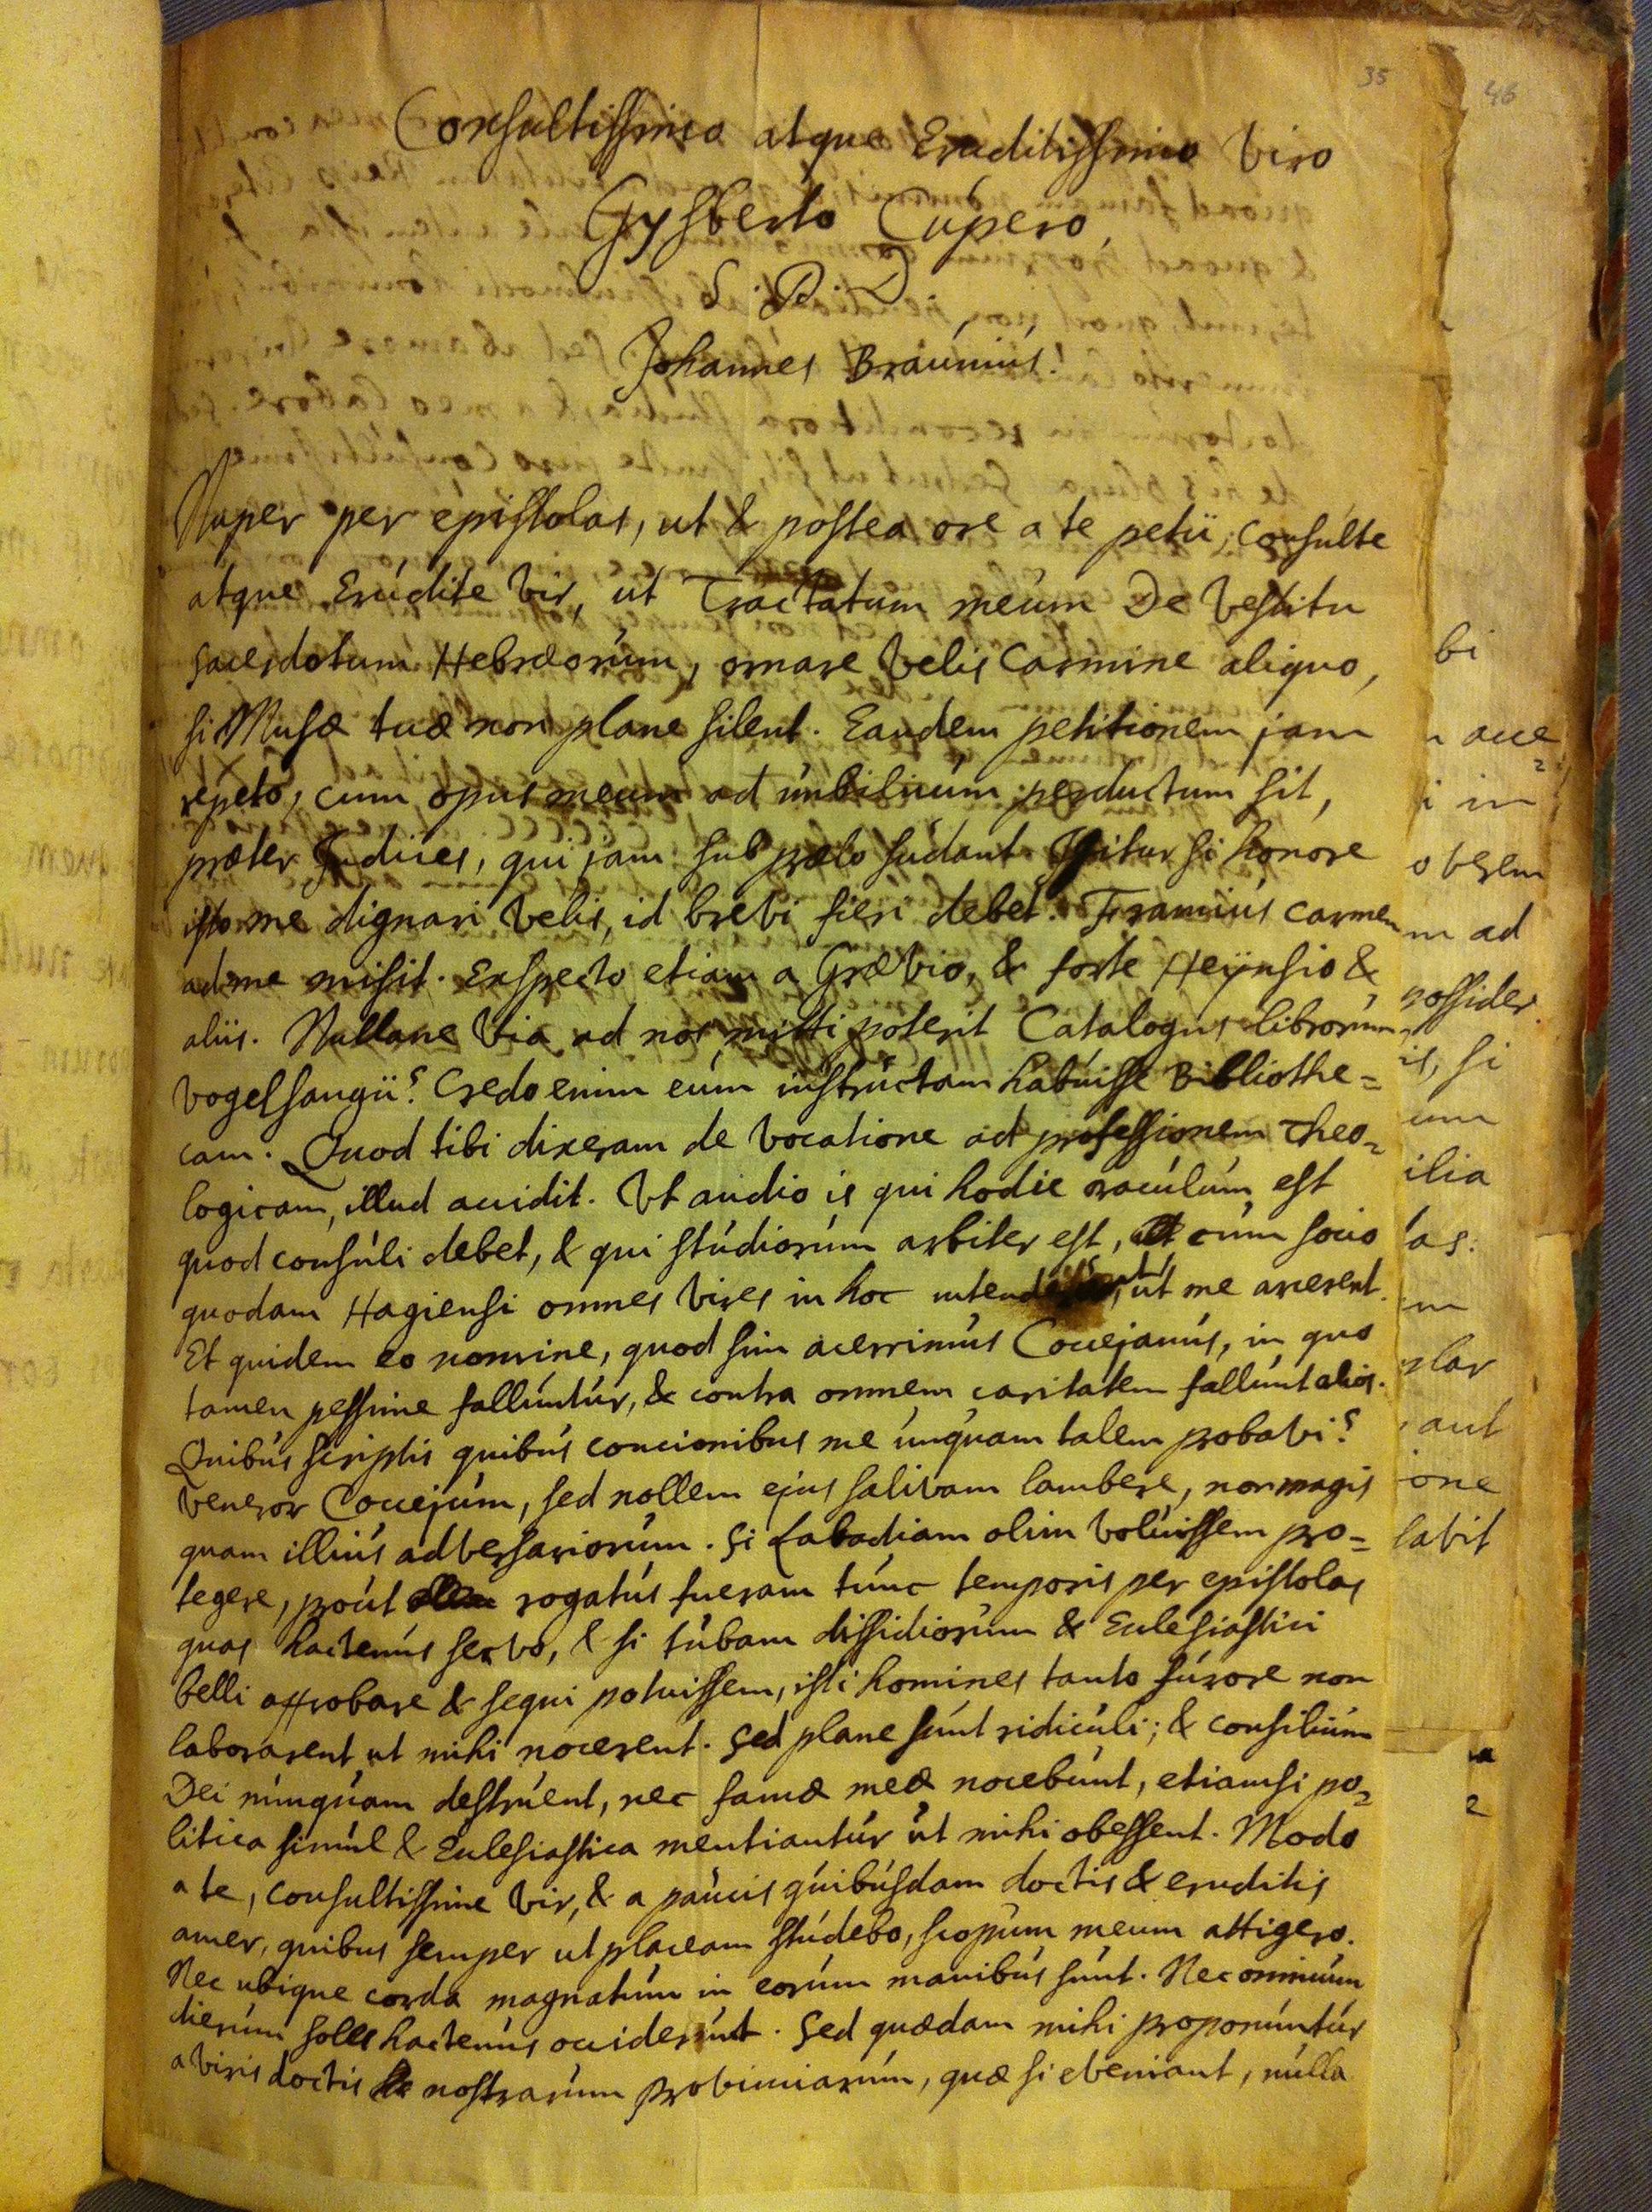 35
46
Consultissimo atque Eruditissimo Viro
Gysberto Cupero,
S. P. D.
Johannes Braunius.
Nuper per epistolas, ut & postea ore a te petii, consulte
atque Erudite Vir, ut Tractatum meum De Vestitu
sacerdotum Hebræorum, ornare Velis Carmine aliquo,
si Musæ tuæ non plane silent. Eandem petitionem jam
repeto, cum opus meum ad umbilicum perductum sit,
præter Indices, qui jam sub prælo sudant. Igitur si honore
isto me dignari Velis, id brevi fieri debet. Francius carmen
ad me misit. Exspecto etiam a Grævio, & forte Heynsio &
aliis. Nullane Via ad nos mitti poterit Catalogus librorum
Vogelsangii? Credo enim eum instructam habuisse Bibliothe=
cam. Quod tibi dixeram de Vocatione ad professionem Theo=
logicam, illud accidit. Ut audio is qui hodie oraculum est
quod consuli debet, & qui studiorum arbiter est, cum socio
quodam Hagiensi omnes Vires in hoc ut me arcerent.
Et quidem eo nomine, quod sim acerrimus Coccejanus, in quo
tamen pessime falluntur, & contra omnem caritatem fallunt alios.
Quibus scriptis quibus concionibus me unquam talem probavi?
Veneror Coccejum, sed nollem ejus salivam lambere, non magis
quam illius adversariorum. Si Labadiam olim Voluissem pro=
tegere, prout rogatus fueram tunc temporis per epistolas
quas hactenus servo, & si tubam dissidiorum & Ecclesiastici
belli approbare & sequi potuissem, isti homines tanto furore non
laborarent ut mihi nocerent. Sed plane sunt ridiculi; & consilium
Dei nunquam destruent, nec famæ meæ nocebunt, etiamsi po=
litica simul & Ecclesiastica mentiantur ut mihi obessent. Modo
a te, consultissime Vir, & a paucis quibusdam doctis & eruditis
amer, quibus semper ut placeam studebo, scopum meum attigero.
Nec ubique corda magnatum in eorum manibus sunt. Nec omnium
dierum soles hactenus occiderunt. Sed quædam mihi proponuntur
a Viris doctis nostrarum provinciarum, quæ si eveniant, nulla
bi
i in
m ad
possider
is, si
um
ilia
as.
aut
ione
labit